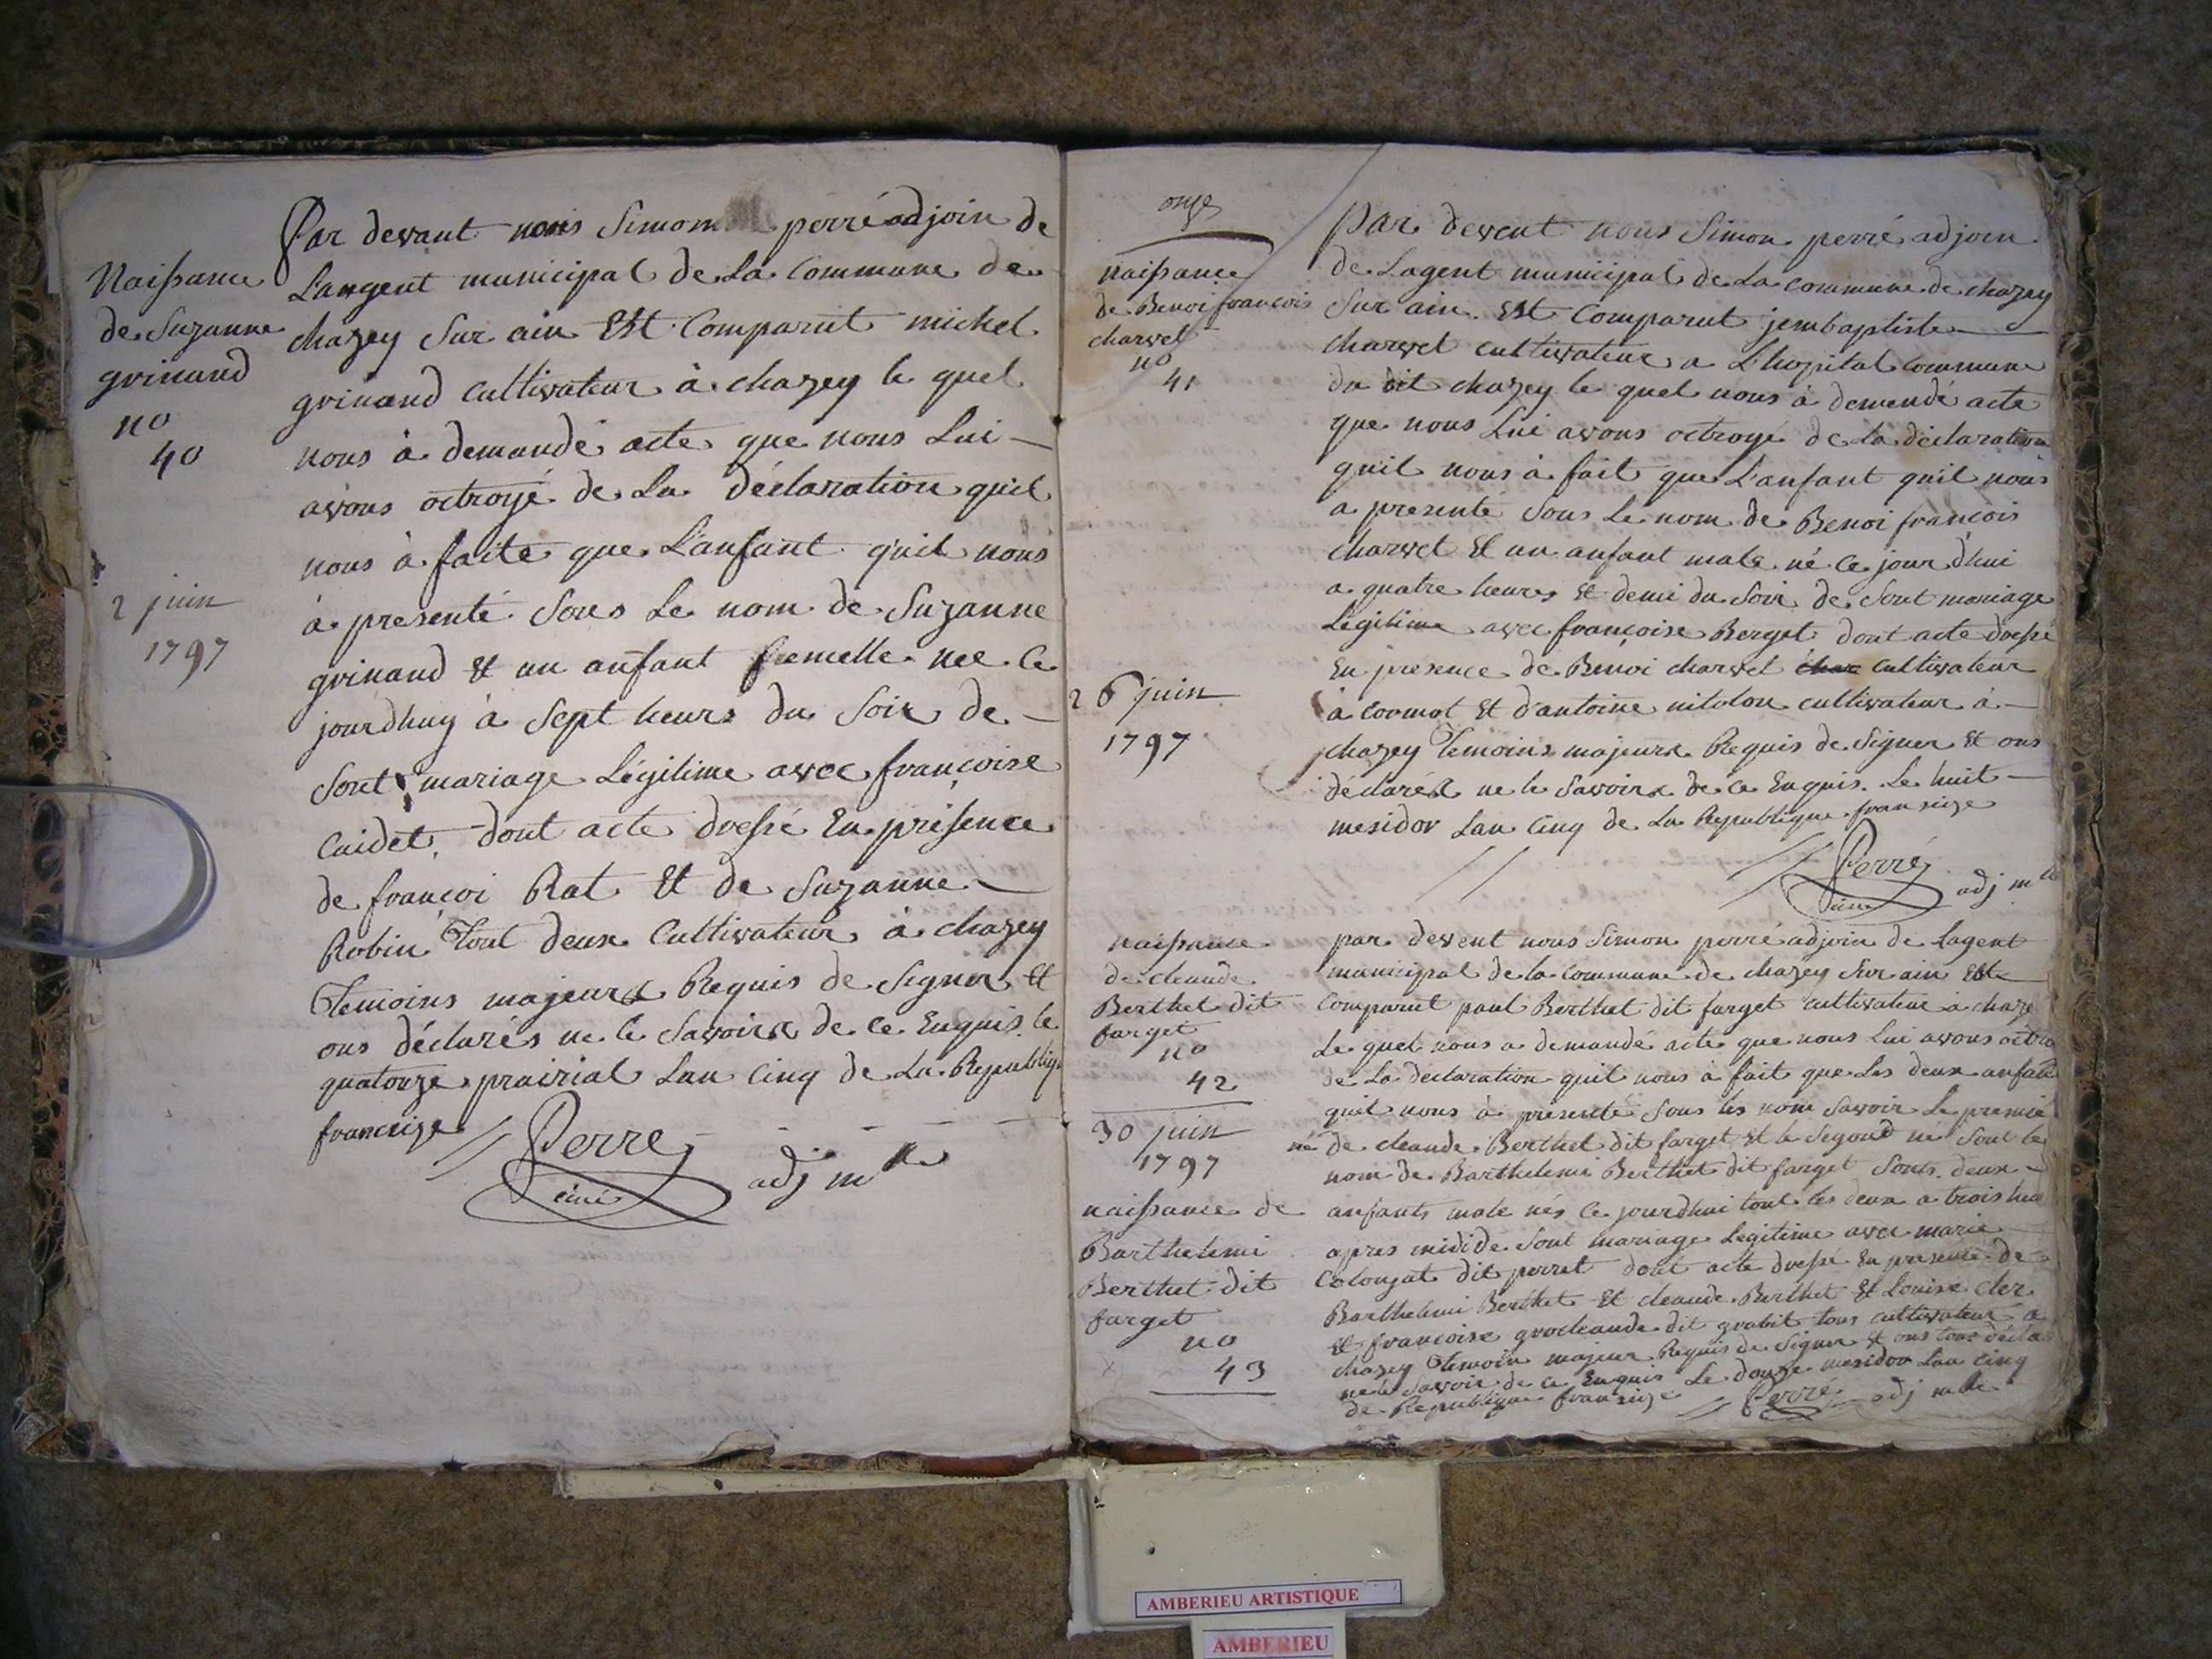 Naissance
de Suzanne
grinand
no
40
2 juin
1797
Par devant nous Simon perré adjoin de
L'angent municipal de La Commune de
chazey Sur ain Est Comparut michel
grinand Cultivateur à chazey le quel
nous à demandé acte que nous Lui —
avons octroyé de La déclaration quil
nous à faite que L'anfant quil nous
à presenté Sous Le nom de Suzanne
grinand Et un anfant femelle nee Ce
jourdhuy à Sept heurs du Soir de —
Sont mariage Légitime avec françoise
Caidet dont acte dressé En présence
de françoi Rat Et de Suzanne —
Robin Tout deux Cultivateur à chazey
Temoins majeurs Requis de Signer Et
ons déclarés ne le Savoir de Ce Enquis le
quatorze prairial Lan Cinq de La Republiq
franceize
Perre adj mle
ainé
onze
naissance
de Benoi francois
charvet
no
41
26 juin
1797
Par devent nous Simon perré adjoin
de Lagent municipal de La commune de chazey
Sur ain Est Comparut jembaptiste —
charvet cultivateur a L'hopital commune
du dit chazey le quel nous à demendé acte
que nous Lui avons octroyé de la déclaration
quil nous à fait que L'anfant quil nous
a presenté Sous Le nom de Benoi françois
charvet Et un anfant male né Ce jour d'hui
a quatre heures Et demi du Soir de Sont mariage
Légitime avec françoise Berget dont acte dressé
En presence de Benoi charvet char cultivateur
à Cormot Et d'antoine cultivateur à —
chazey Temoins majeurs Requis de Signer Et ons
déclarés ne le Savoir de Ce Enquis Le huit —
mesidor Lan Cinq de La Republique franseize
Perré adj mle
ainé
naissance
de cleaude
Berthet dit
farget
no
42
30 juin
1797
naissance de
Barthelemi
Berthet dit
farget
no
43
par devent nous Simon perré adjoin de Lagent
municipal de la Commune de chazey Sur ain Est
Comparut paul Berthet dit farget cultivateur à chaze
Le quel nous a demandé acte que nous Lui avons octro
de La declaration quil nous à fait que Les deux anfant
quil nous à présenté Sous les nom Savoir Le premié
né de cleaude Berthet dit farget Et le Segond né Sout le
nom de Barthelemi Berthet dit farget Sonts deux —
anfants male nés Ce jourdhui tout les deux a trois heu
apres midi de Sont mariage Légitime avec marie
Colonjat dit perret dont acte dressé En presence de
Barthelemi Berthet Et cleaude Berthet Et Louise cler
Et françoise grocleaude dit grabit tous cultivateur a
chazey Temoin majeur Requis de Signer Et ons tous décla
ne le Savoir de Ce Enquis Le douze mesidor Lan Cinq
de Republique franseize
Perré adj mle
AMBERIEU ARTISTIQUE
AMBERIEU